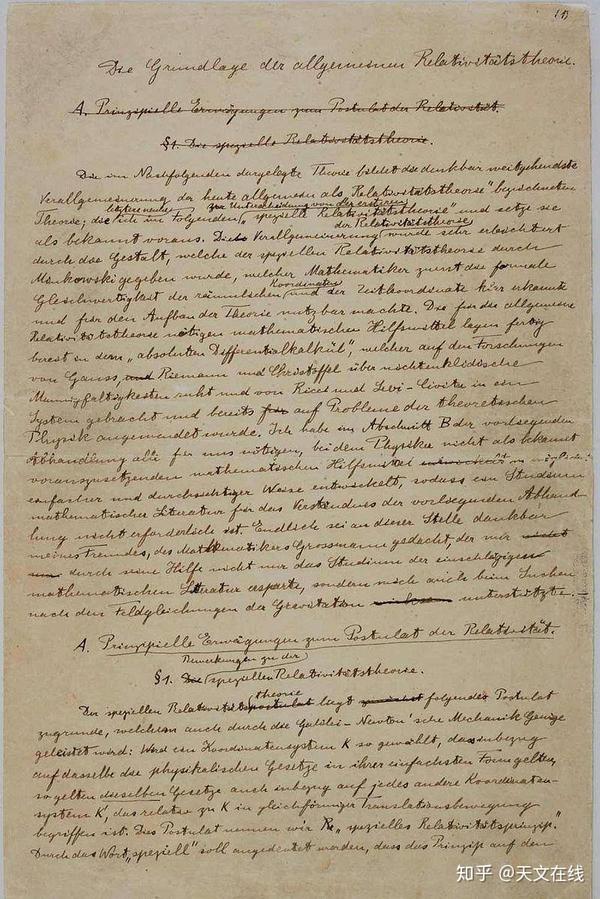 (1)
Die Grundlage der allgemeinen Relativitätstheorie.
A. Prinzipielle Erwägungen zum Postulat der Relativität.
§1. Die spezielle Relativitätstheorie.
Die im Nachfolgenden dargelegte Theorie bildet die denkbar weitgehendste
Verallgemeinerung der heute allgemein als „Relativitätstheorie" bezeichneten
letztere nenne zur Unterscheidung von der ersteren
Theorie; die ich im Folgenden „spezielle Relativitätstheorie" und setze sie
der Relativitätstheorie
als bekannt voraus. Die Verallgemeinerung wurde sehr erleichtert
durch die Gestalt, welche der speziellen Relativitätstheorie durch
Minkowski gegeben wurde, welcher Mathematiker zuerst die formale
Koordinaten
Gleichwertigkeit der räumlichen und der Zeitkoordinate klar erkannte
und für den Aufbau der Theorie nutzbar machte. Die für die allgemeine
Relativitätstheorie nötigen mathematischen Hilfsmittel lagen fertig
bereit in dem „absoluten Differentialkalkül", welcher auf den Forschungen
von Gauss, und Riemann und Christoffel über nichteuklidische
Mannigfaltigkeiten ruht und von Ricci und Levi-Civita in ein
System gebracht und bereits für auf Probleme der theoretischen
Physik angewendet wurde. Ich habe im Abschnitt B der vorliegenden
Abhandlung alle für uns nötigen, bei dem Physiker nicht als bekannt
vorauszusetzenden mathematischen Hilfsmittel entwickelt in möglichst
einfacher und durchsichtiger Weise entwickelt, sodass ein Studium
mathematischer Literatur für das Verständnis der vorliegenden Abhand-
lung nicht erforderlich ist. Endlich sei an dieser Stelle dankbar
meines Freundes, des Mathematikers Grossmann gedacht, der mir nicht
durch seine Hilfe nicht nur das Studium der einschlägigen
mathematischen Literatur ersparte, sondern mich auch beim Suchen
nach den Feldgleichungen der Gravitation unterstützte.
A. Prinzipielle Erwägungen zum Postulat der Relativität.
Bemerkungen zu der
§1. Die speziellen Relativitätstheorie.
theorie
Der speziellen Relativitätspostulat liegt folgendes Postulat
zugrunde, welchem auch durch die Galilei-Newton'sche Mechanik Genüge
geleistet wird: Wird ein Koordinatensystem K so gewählt, dass inbezug
auf dasselbe die physikalischen Gesetze in ihrer einfachsten Form gelten,
so gelten dieselben Gesetze auch inbezug auf jedes andere Koordinaten-
system K', das relativ zu K in gleichförmiger Translationsbewegung
begriffen ist. Dies Postulat nennen wir „spezielles Relativitätsprinzip."
Durch das Wort „speziell" soll angedeutet werden, dass das Prinzip auf den
知乎 @天文在线